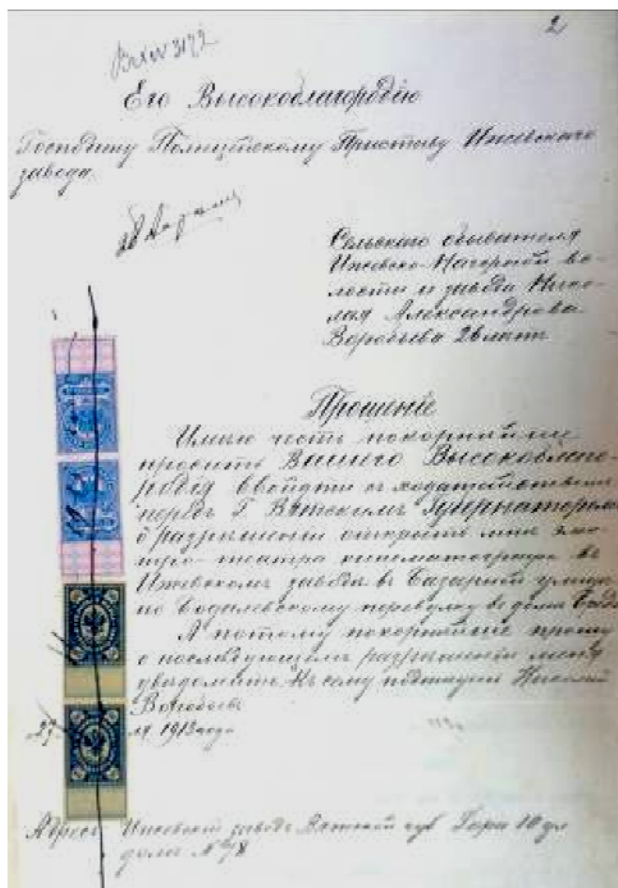 2
Вх № 3172
Его Высокоблагородію
Господину Полицейскому Приставу Ижевскаго
завода
Сельскаго обывателя
Ижевско-Нагорной во-
лости и завода Нико-
лая Александрова
Воробьева
Прошеніе
Имѣю честь покорнѣйше
просить Вашего Высокоблаго-
родія войдти съ ходатайствомъ
передъ Г. Вятскимъ Губернаторомъ
о разрѣшеніи открыть мнѣ элек-
тро-театра кинематографа въ
Ижевскомъ заводѣ въ Базарной улицѣ
по Бодалевскому переулку въ домѣ
А потому покорнѣйше прошу
о послѣдующемъ разрѣшеніи меня
увѣдомить. Къ сему подписуюсь Николай
Воробьевъ
27 1913 года
Адресъ: Ижевскій заводъ Вятской губ Гора 10 ул
домъ № 78